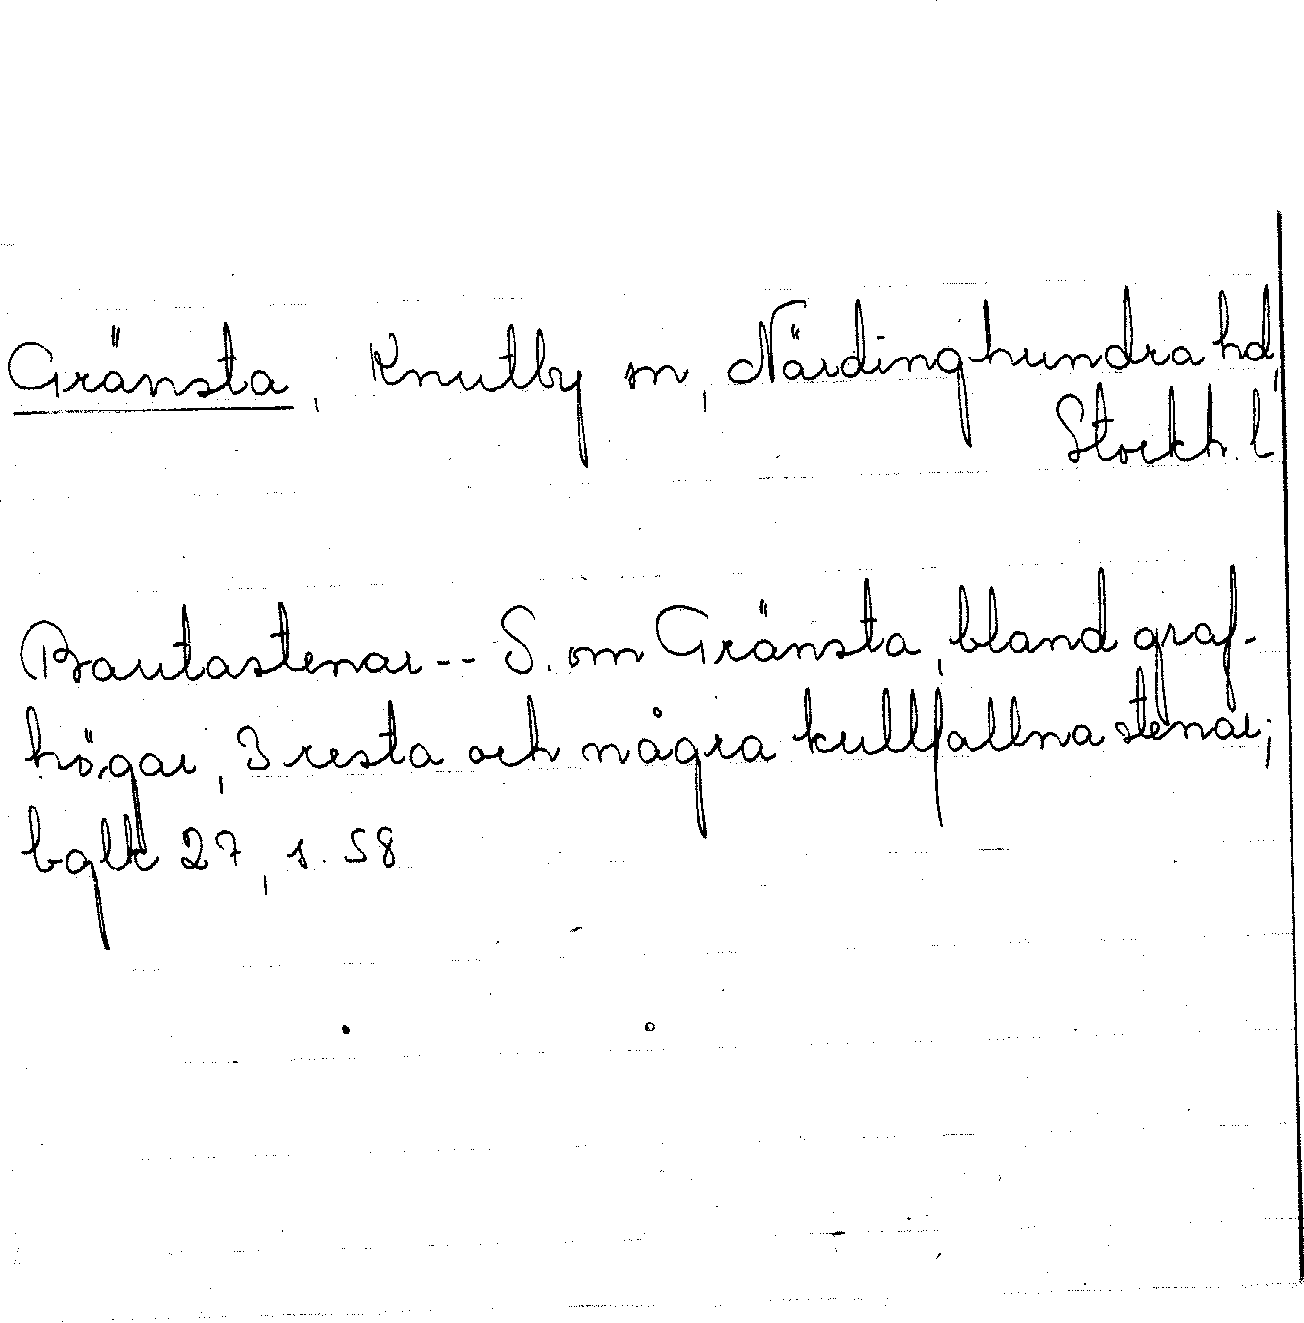 Gränsta, Knutby sn, Närdinghundra hd,
Stockh. l
Bautastenar -- S. om Gränsta, bland graf-
högar, 3 resta och några kullfallna stenar;
bglk 27, s. 58